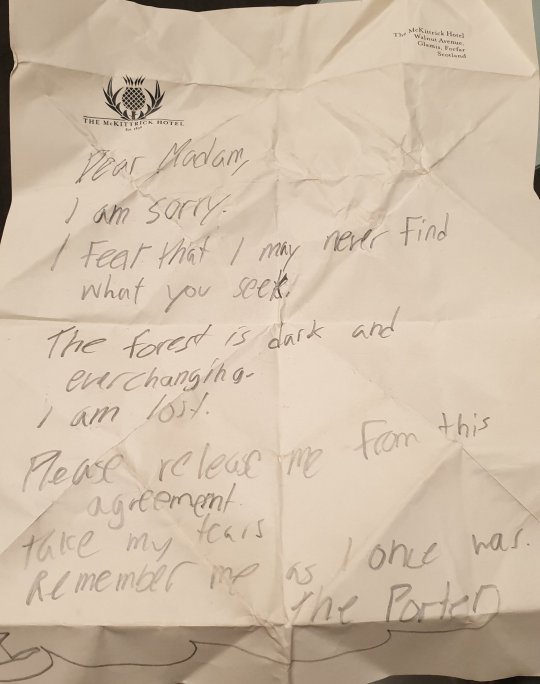 The McKittrick Hotel
Walnut Avenue,
Glamis, Forfar
Scotland
THE McKITTRICK HOTEL
Dear Madam,
I am sorry.
I fear that I may never find
what you seek.
The forest is dark and
everchanging.
I am lost.
Please release me from this
agreement.
take my tears
Remember me as I once was.
The Porter